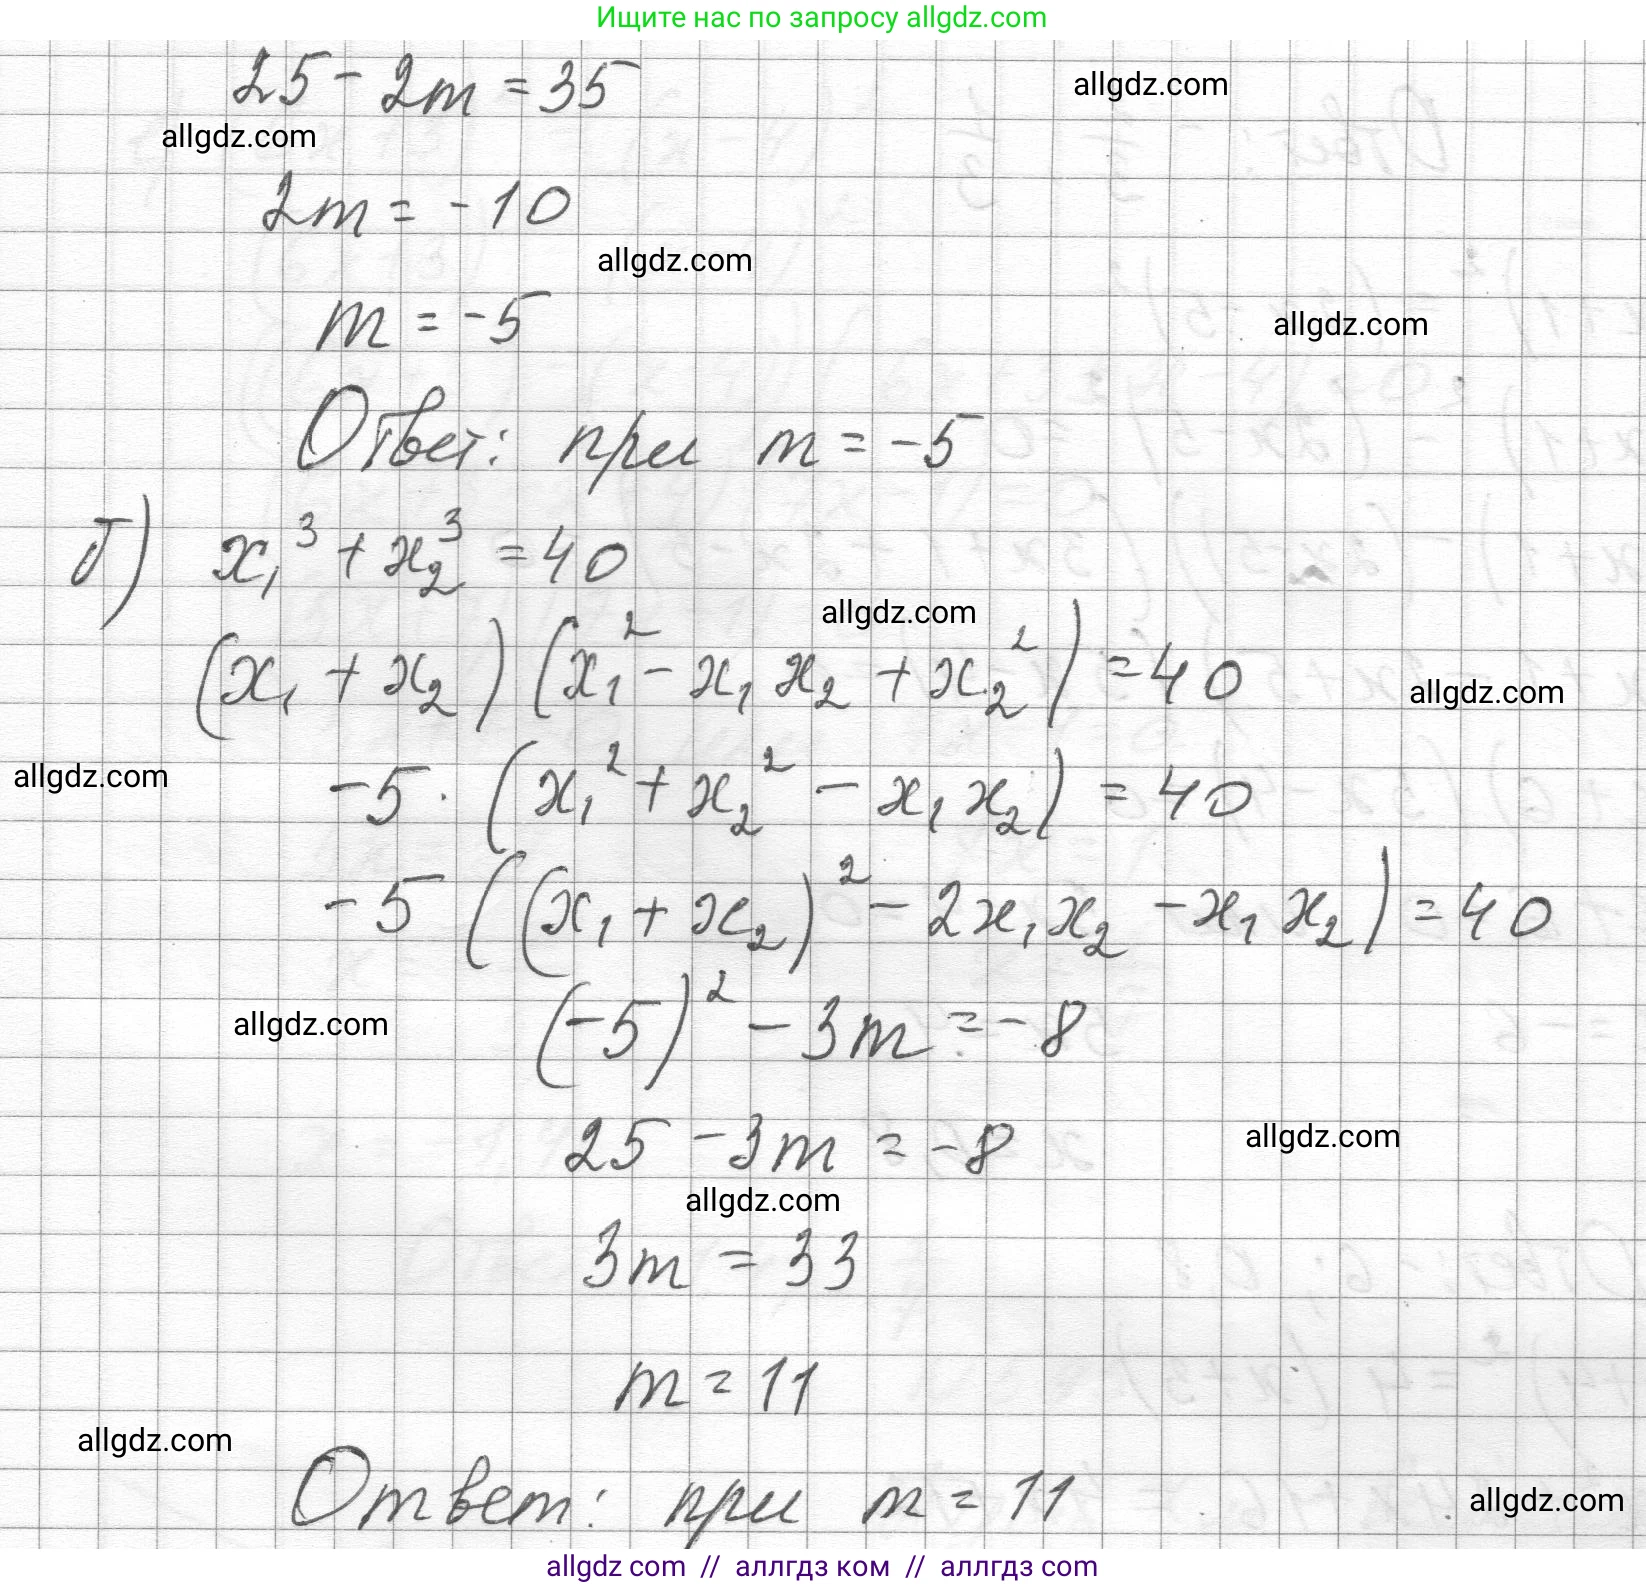 Ищите нас по запросу allgdz.com
25 - 2m = 35
allgdz.com
allgdz.com
2m = -10
allgdz.com
m = -5
allgdz.com
Ответ: при m = -5
б) x₁³ + x₂³ = 40
allgdz.com
(x₁ + x₂)(x₁² - x₁x₂ + x₂²) = 40
allgdz.com
allgdz.com
-5 · (x₁² + x₂² - x₁x₂) = 40
-5((x₁ + x₂)² - 2x₁x₂ - x₁x₂) = 40
allgdz.com
(-5)² - 3m = -8
25 - 3m = -8
allgdz.com
allgdz.com
3m = 33
m = 11
allgdz.com
Ответ: при m = 11
allgdz.com
allgdz com // аллгдз ком // аллгdz com